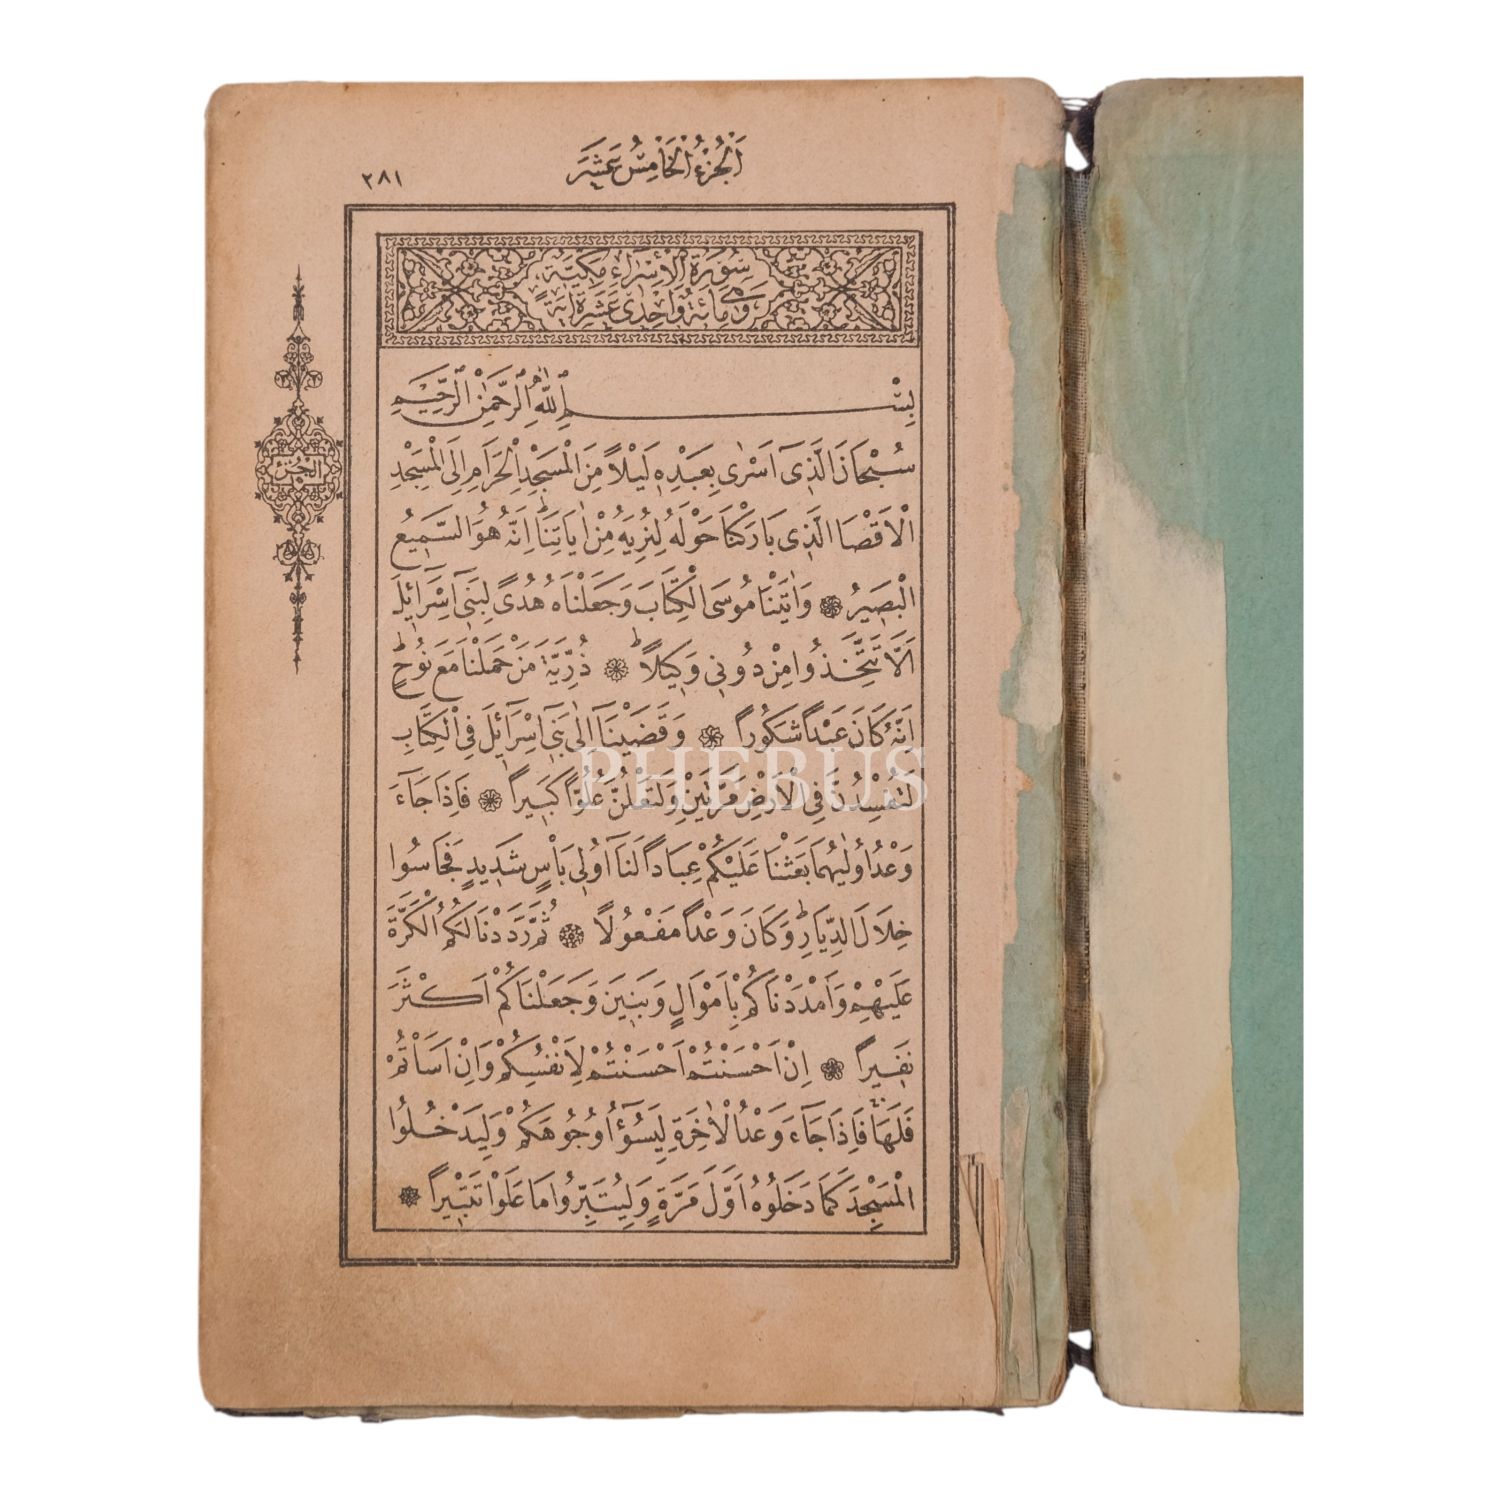 اَلْجُزْءُ الْخَامِسُ عَشَرَ
٢٨١
سُورَةُ الْاِسْرَاءِ مَكِّيَّةٌ
وَهِيَ مِائَةٌ وَاِحْدٰى عَشَرَةَ اٰيَةً
الجزء
بِسْمِ اللّٰهِ الرَّحْمٰنِ الرَّحِيمِ
سُبْحَانَ الَّذِٓى اَسْرٰى بِعَبْدِهِ لَيْلًا مِنَ الْمَسْجِدِ الْحَرَامِ اِلَى الْمَسْجِدِ
الْاَقْصَا الَّذِى بَارَكْنَا حَوْلَهُ لِنُرِيَهُ مِنْ اٰيَاتِنَاۜ اِنَّهُ هُوَ السَّمِيعُ
الْبَصِيرُ ۞ وَاٰتَيْنَا مُوسَى الْكِتَابَ وَجَعَلْنَاهُ هُدًى لِبَنِٓى اِسْرَٓائِلَ
اَلَّا تَتَّخِذُوا مِنْ دُونِى وَكِيلًاۜ ۞ ذُرِّيَّةَ مَنْ حَمَلْنَا مَعَ نُوحٍۜ
اِنَّهُ كَانَ عَبْدًا شَكُورًا ۞ وَقَضَيْنَٓا اِلٰى بَنِٓى اِسْرَٓائِلَ فِى الْكِتَابِ
لَتُفْسِدُنَّ فِى الْاَرْضِ مَرَّتَيْنِ وَلَتَعْلُنَّ عُلُوًّا كَبِيرًا ۞ فَاِذَا جَٓاءَ
وَعْدُ اُولٰيهُمَا بَعَثْنَا عَلَيْكُمْ عِبَادًا لَنَٓا اُولِى بَاْسٍ شَدِيدٍ فَجَاسُوا
خِلَالَ الدِّيَارِۜ وَكَانَ وَعْدًا مَفْعُولًا ۞ ثُمَّ رَدَدْنَا لَكُمُ الْكَرَّةَ
عَلَيْهِمْ وَاَمْدَدْنَاكُمْ بِاَمْوَالٍ وَبَنِينَ وَجَعَلْنَاكُمْ اَكْثَرَ
نَفِيرًا ۞ اِنْ اَحْسَنْتُمْ اَحْسَنْتُمْ لِاَنْفُسِكُمْ وَاِنْ اَسَاْتُمْ
فَلَهَا فَاِذَا جَٓاءَ وَعْدُ الْاٰخِرَةِ لِيَسُٓؤُا وُجُوهَكُمْ وَلِيَدْخُلُوا
الْمَسْجِدَ كَمَا دَخَلُوهُ اَوَّلَ مَرَّةٍ وَلِيُتَبِّرُوا مَا عَلَوْا تَتْبِيرًا ۞
PHEBUS